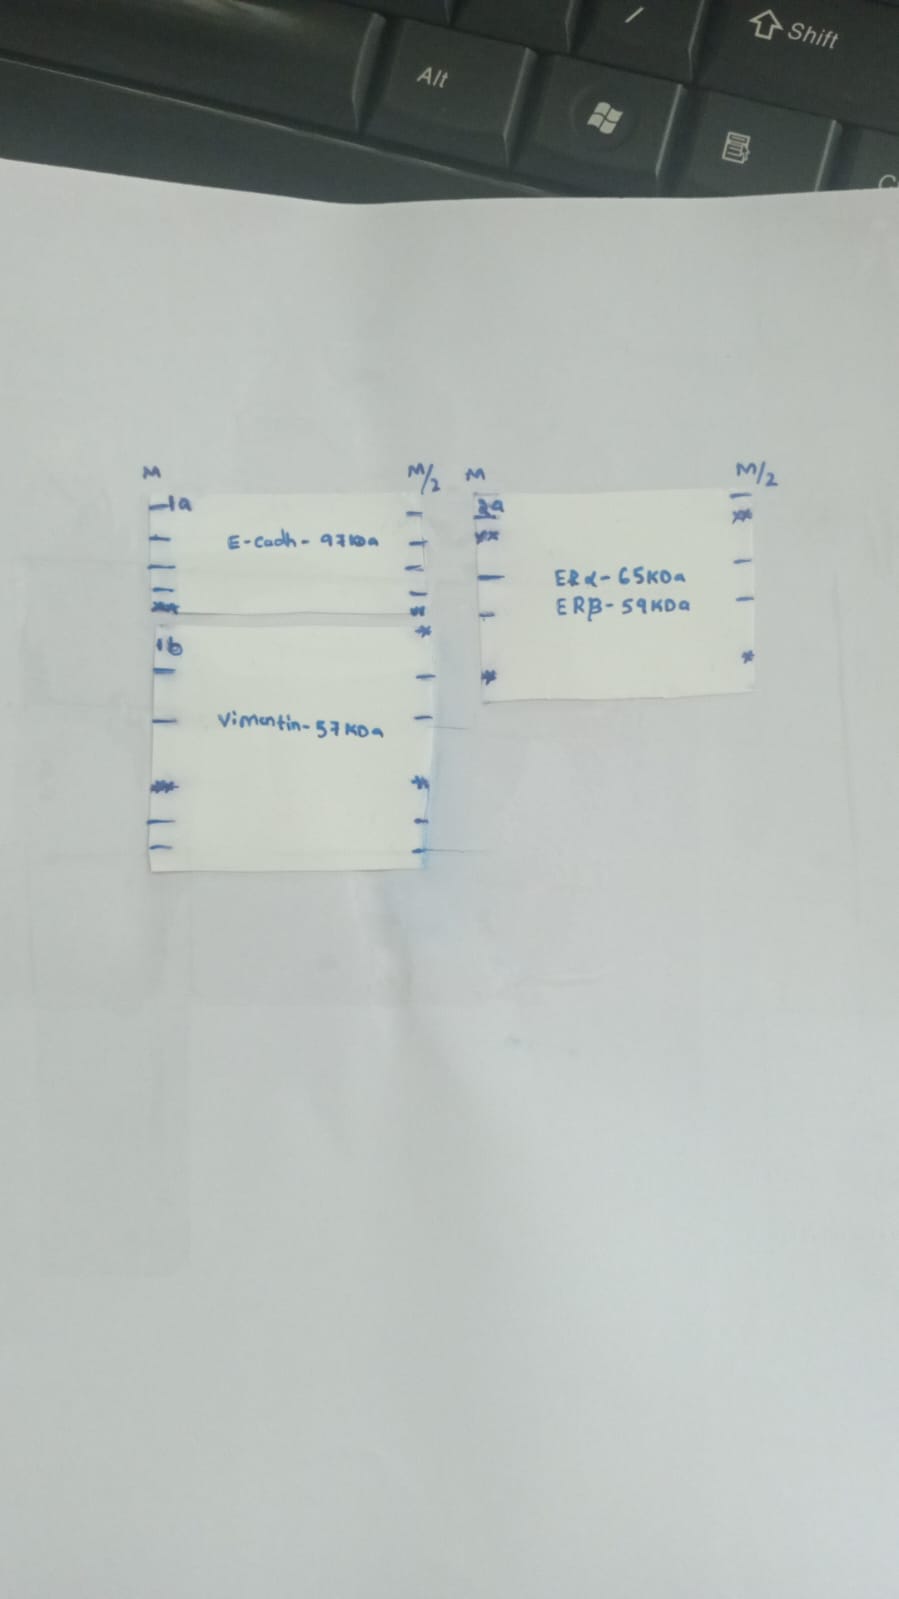 /
Shift
Alt
M
M/2
M
M/2
1a
E-cadh- 97KDa
**
1b
Vimentin-57KDa
2a
**
ERα-65KDa
ERβ-59KDa